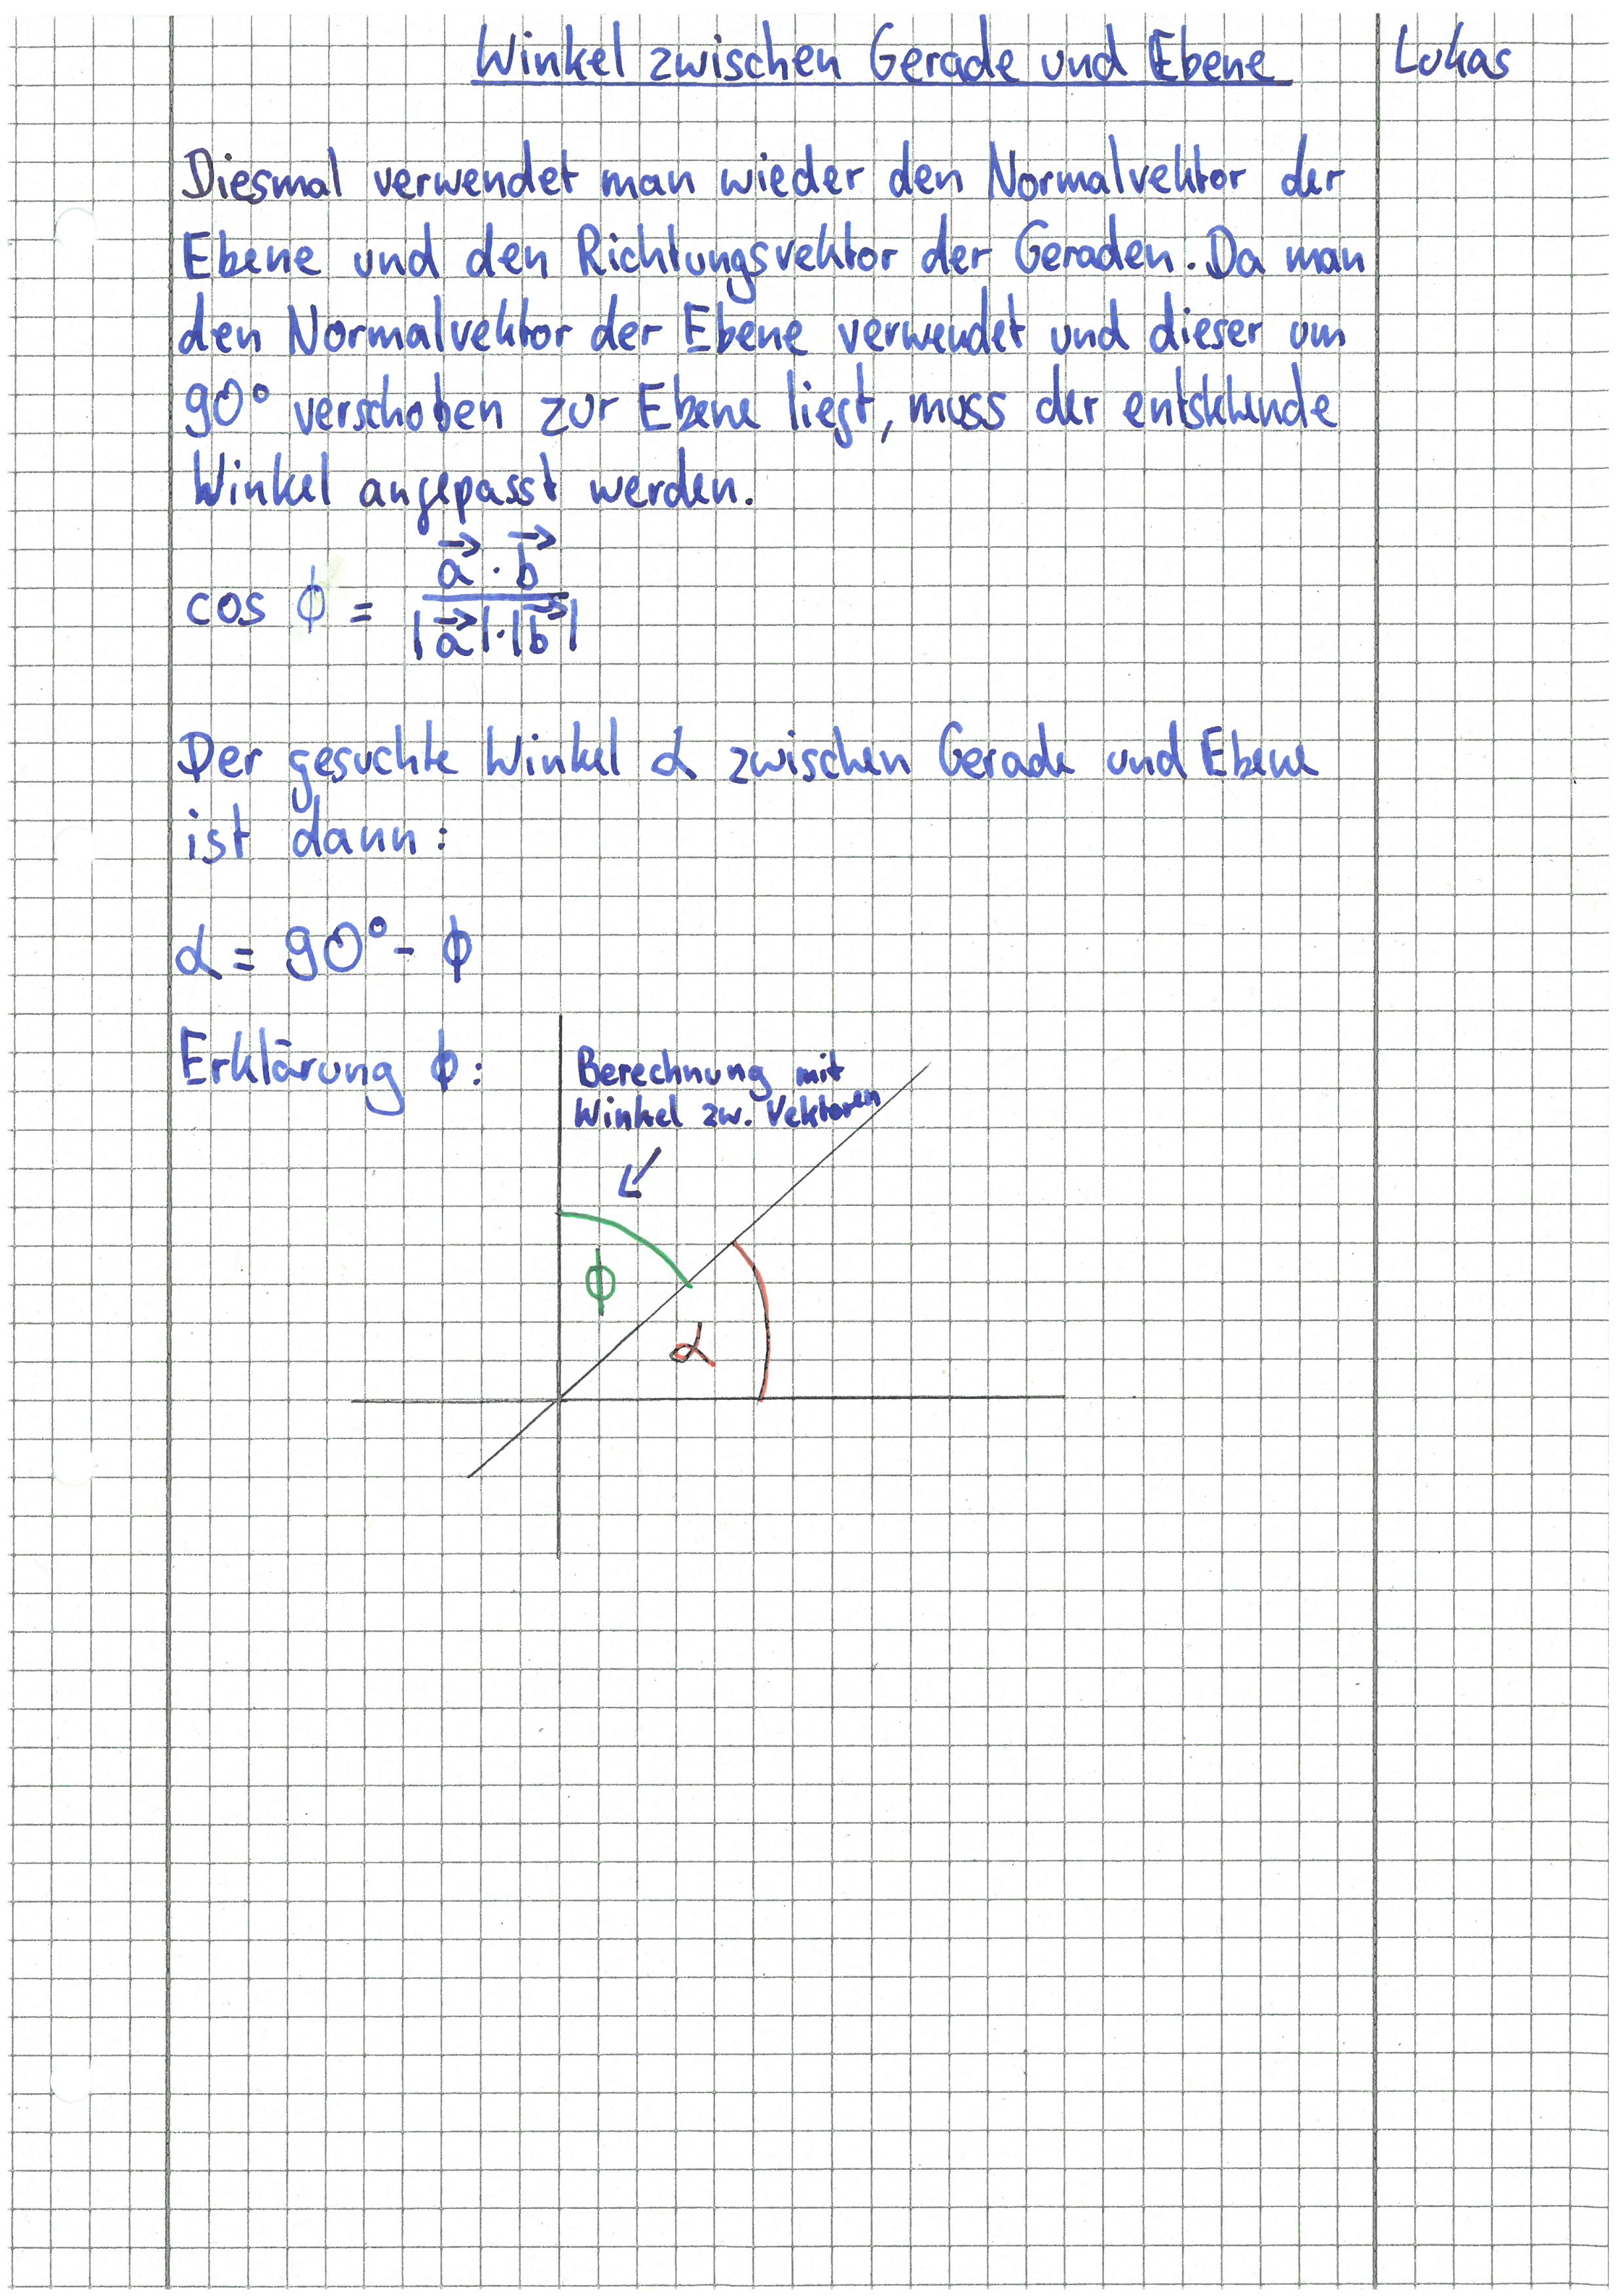 Winkel zwischen Gerade und Ebene Lukas
Diesmal verwendet man wieder den Normalvektor der
Ebene und den Richtungsvektor der Geraden. Da man
den Normalvektor der Ebene verwendet und dieser um
90° verschoben zur Ebene liegt, muss der entstehende
Winkel angepasst werden.
cos ϕ = (a⃗ · b⃗) / (|a⃗| · |b⃗|)
Der gesuchte Winkel α zwischen Gerade und Ebene
ist dann:
α = 90° - ϕ
Erklärung ϕ:
Berechnung mit
Winkel zw. Vektoren
ϕ
α